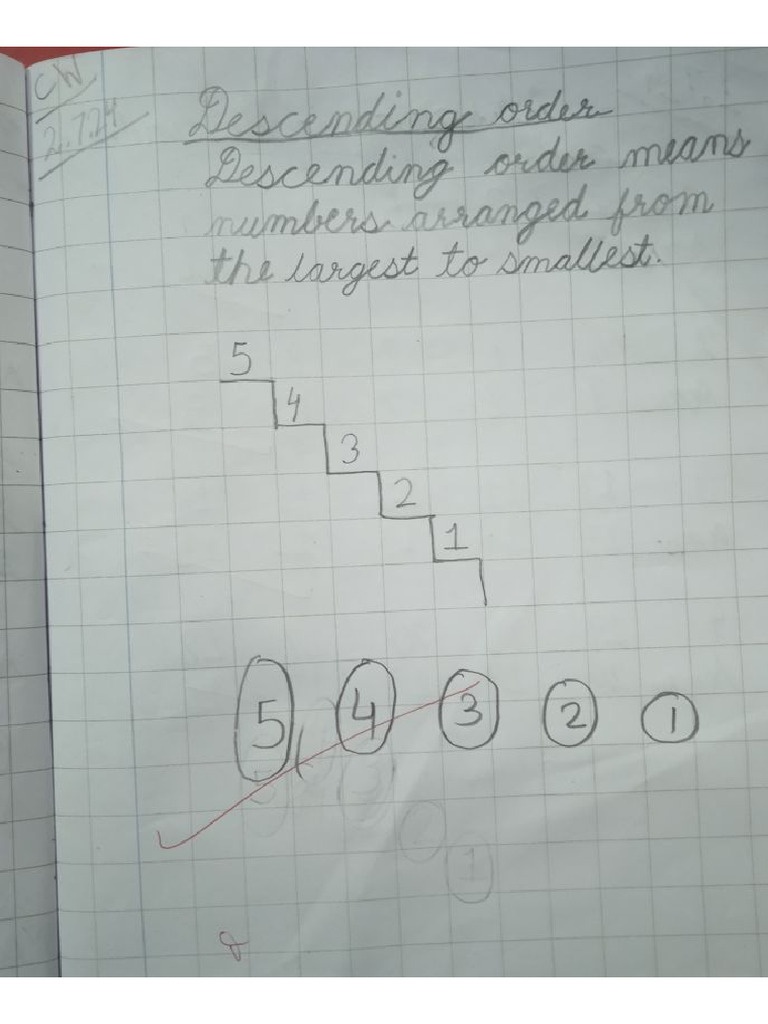 CW
2.7.21
Descending order
Descending order means
numbers arranged from
the largest to smallest.
5
4
3
2
1
5, 4 3 2 1